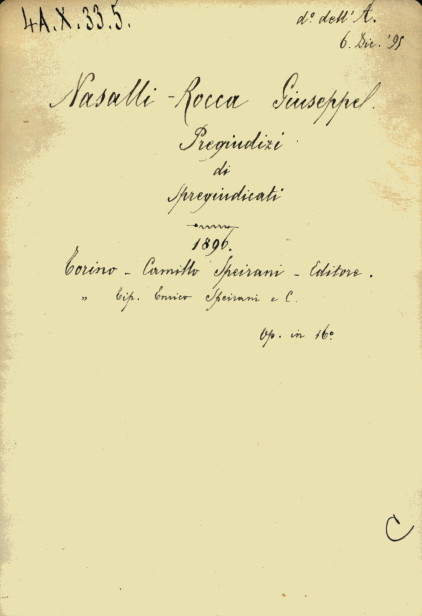 4A.X.33.5.
d.º dell'A.
6. Dic. '95
Nasalli-Rocca Giuseppe.
Pregiudizi
di
Spregiudicati
1896.
Torino - Camillo Speirani - Editore.
" Tip. Enrico Speirani e C.
Op. in 16º
C